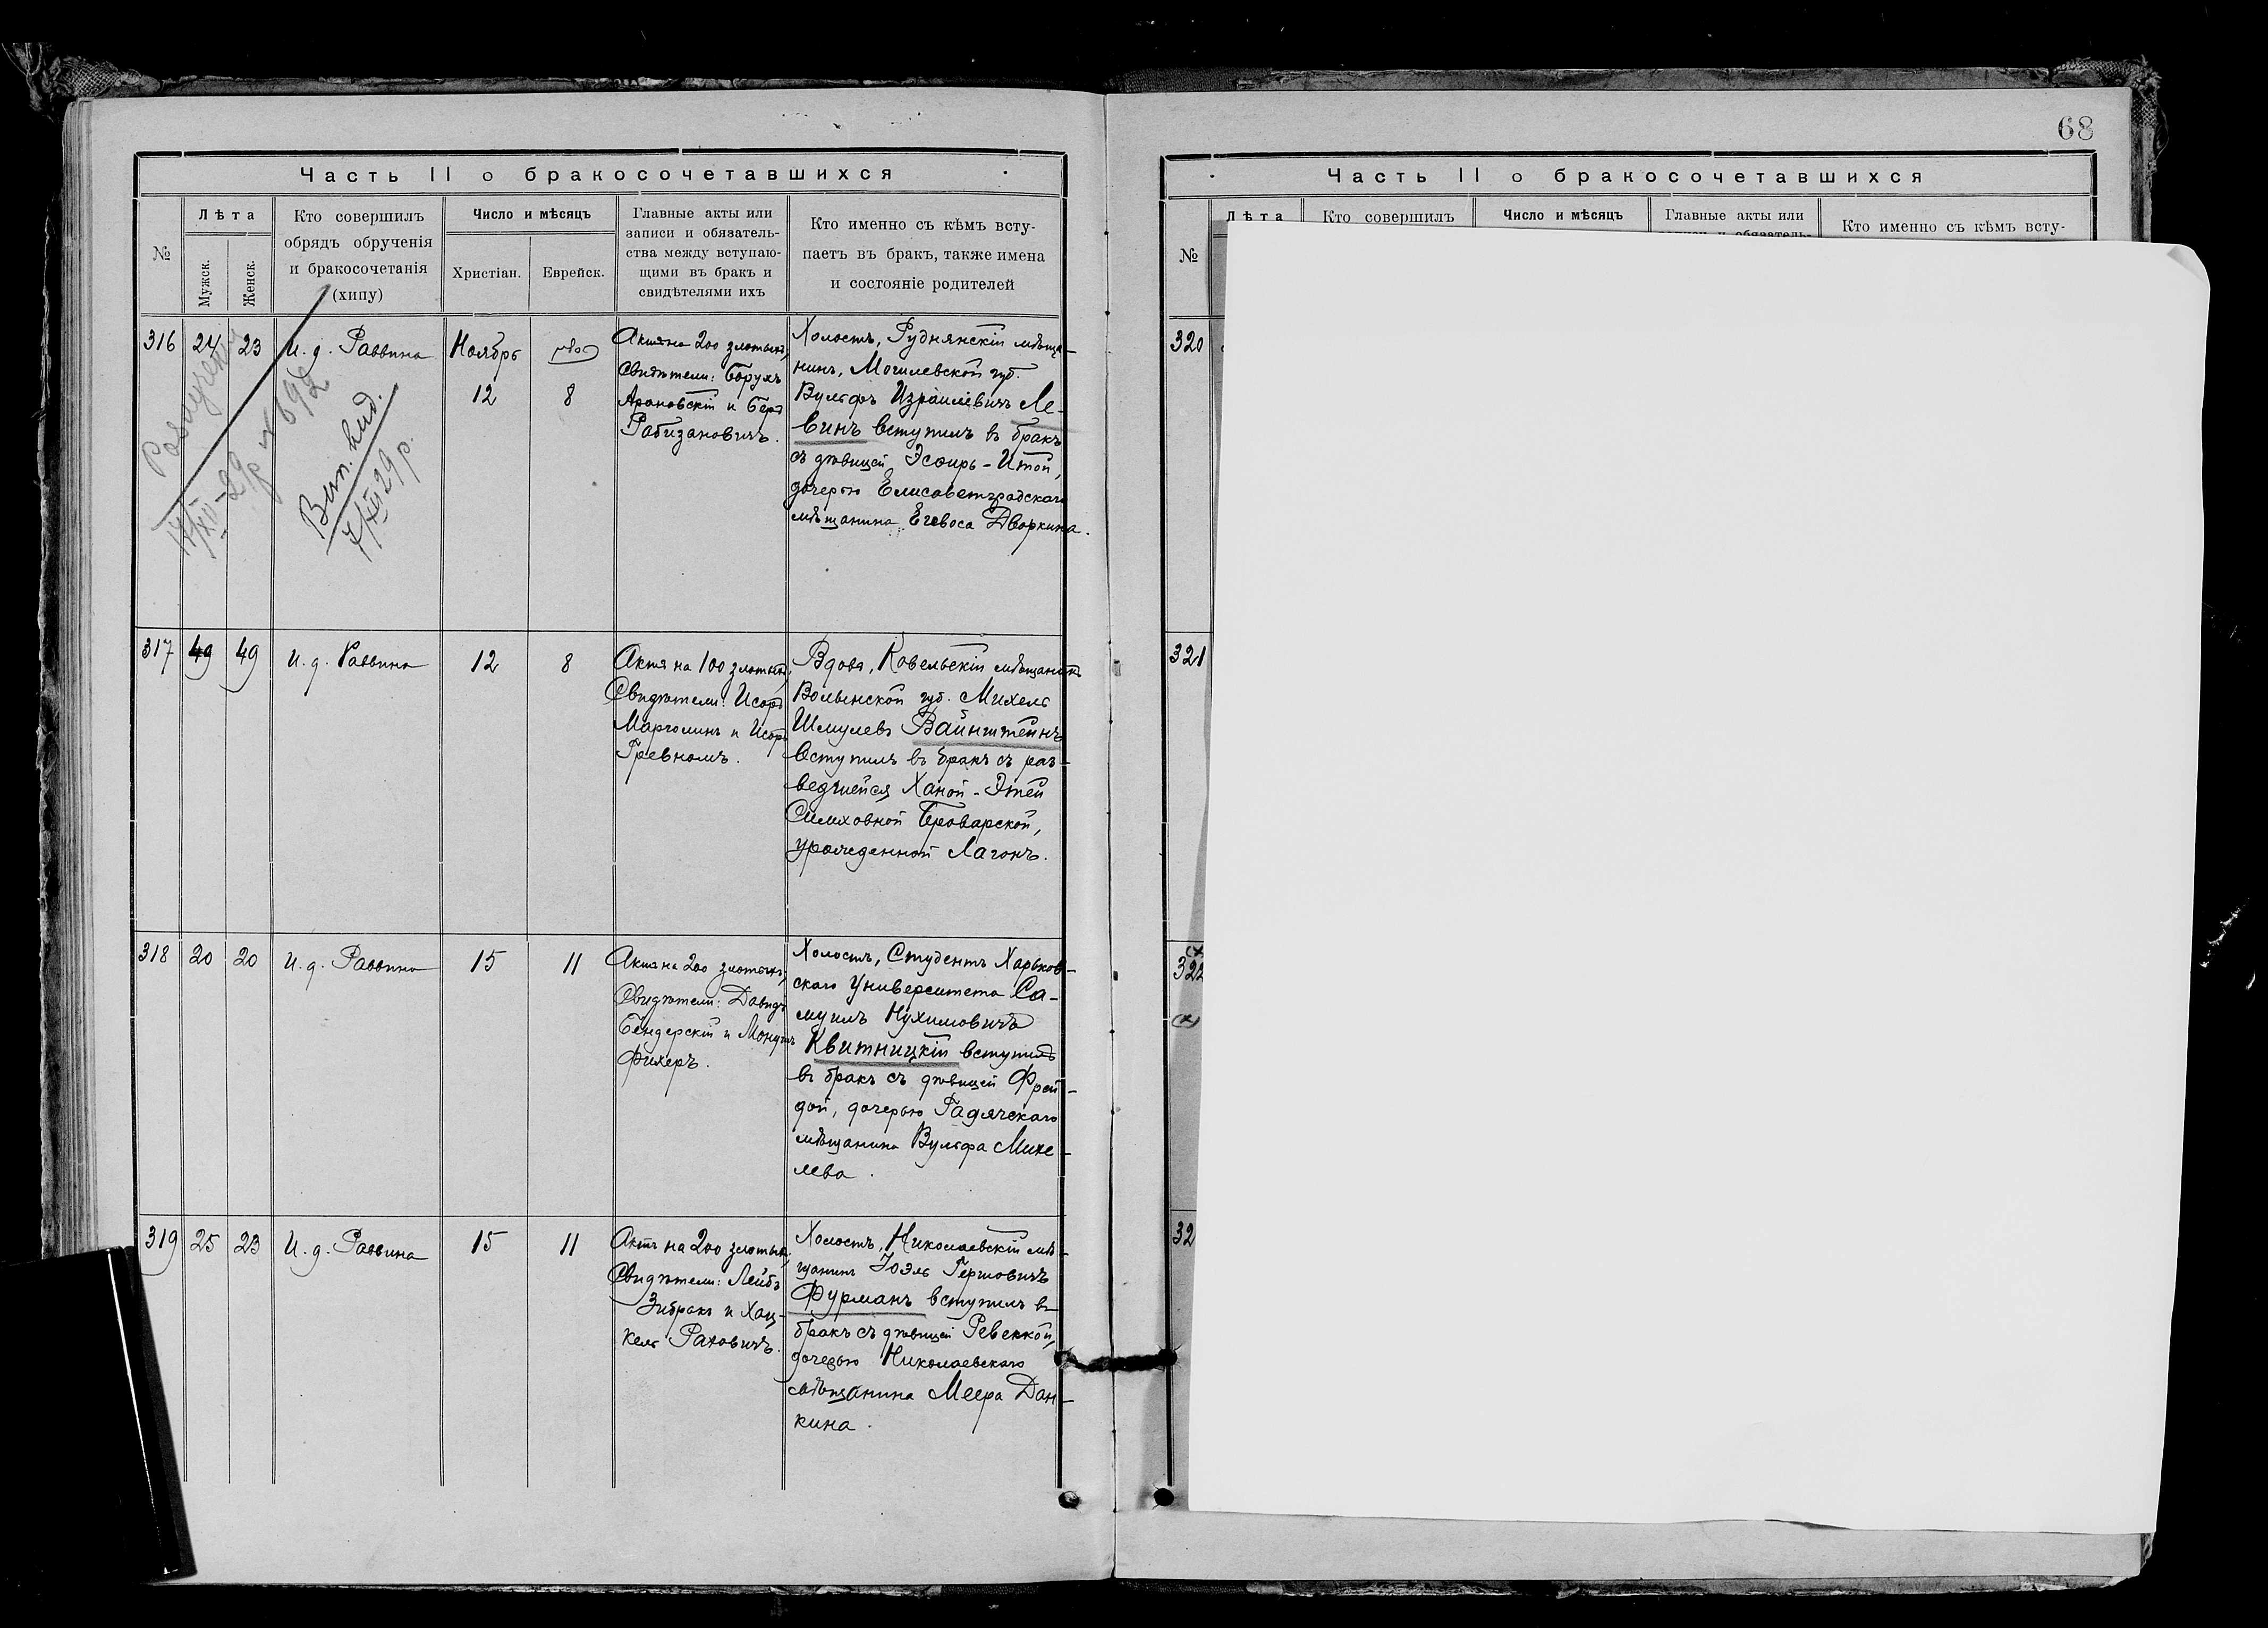 68
Часть II о бракосочетавшихся
№
Лѣта
Мужск.
Женск.
Кто совершилъ
обрядъ обрученія
и бракосочетанія
(хипу)
Число и мѣсяцъ
Христіан.
Еврейск.
Главные акты или
записи и обязатель-
ства между вступаю-
щими въ бракъ и
свидѣтелями ихъ
Кто именно съ кѣмъ всту-
паетъ въ бракъ, также имена
и состояніе родителей
316
24
23
И. д. Раввина
Ноябрь
12
8
Актъ на 200 злотыхъ,
Свидѣтели: Борухъ
Арановскій и Беръ
Рабизановичъ.
Холостъ, Руднянскій мѣща-
нинъ, Могилевской губ.
Вульфъ Израилевичъ Ле-
винъ вступилъ въ бракъ
съ дѣвицей Эсѳирь-Итой,
дочерью Елисаветградскаго
мѣщанина Егевоса Дворкина.
Разлучены
14/XII-29р № 692
Вит. вид.
7/XII 29 р.
317
49
49
И. д. Раввина
12
8
Актъ на 100 злотыхъ,
Свидѣтели: Исоръ
Марголинъ и Исоръ
Вдовъ, Ковельскій мѣщанинъ
Волынской губ. Михель
Шмулевъ Вайнштейнъ
вступилъ въ бракъ съ раз-
ведшейся Ханой-Этей
Симховной Броварской,
урожденной Лагонъ.
318
20
20
И. д. Раввина
15
11
Актъ на 200 злотыхъ,
Свидѣтели: Давидъ
Бендерскій и Монусъ
Фихеръ.
Холостъ, Студентъ Харьков-
скаго Университета Са-
муилъ Нухимовичъ
Квитницкій вступилъ
въ бракъ съ дѣвицей Фрей-
дой, дочерью Гадячскаго
мѣщанина Вульфа Михе-
лева.
319
25
23
И. д. Раввина
15
11
Актъ на 200 злотыхъ,
Свидѣтели: Лейбъ
Зибракъ и Хац-
кель Раковичъ.
Холостъ, Николаевскій мѣ-
щанинъ Іоэль Гершовичъ
Фурманъ вступилъ въ
бракъ съ дѣвицей Ревеккой,
дочерью Николаевскаго
мѣщанина Меера Дан-
кина.
Часть II о бракосочетавшихся
№
Лѣта
Кто совершилъ
Число и мѣсяцъ
Главные акты или
Кто именно съ кѣмъ всту-
320
321
(х)
322
(х)
32